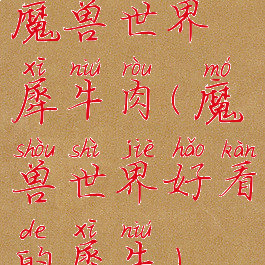 魔兽世界
xī niú ròu mó
犀牛肉(魔
shòu shì jiè hǎo kàn
兽世界好看
de xī niú
的犀牛)